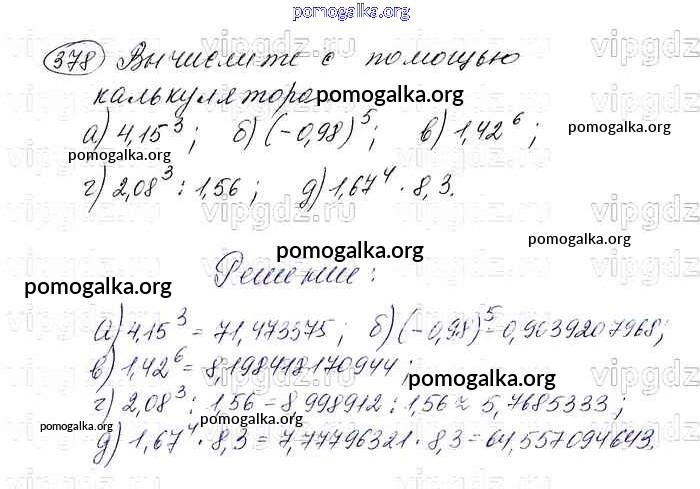 pomogalka.org
378 Вычислите с помощью
калькулятора
pomogalka.org
а) 4,15³; б) (-0,98)⁵; в) 1,42⁶;
pomogalka.org
pomogalka.org
г) 2,08³ : 1,56; д) 1,67⁴ · 8,3.
pomogalka.org
pomogalka.org
Решение:
pomogalka.org
а) 4,15³ = 71,473375; б) (-0,98)⁵ = 0,9039207968;
в) 1,42⁶ = 8,198418170944;
pomogalka.org
г) 2,08³ : 1,56 = 8,998912 : 1,56 ≈ 5,7685333;
pomogalka.org
pomogalka.org
д) 1,67⁴ · 8,3 = 7,77796321 · 8,3 = 64,557094643.
vipgdz.ru